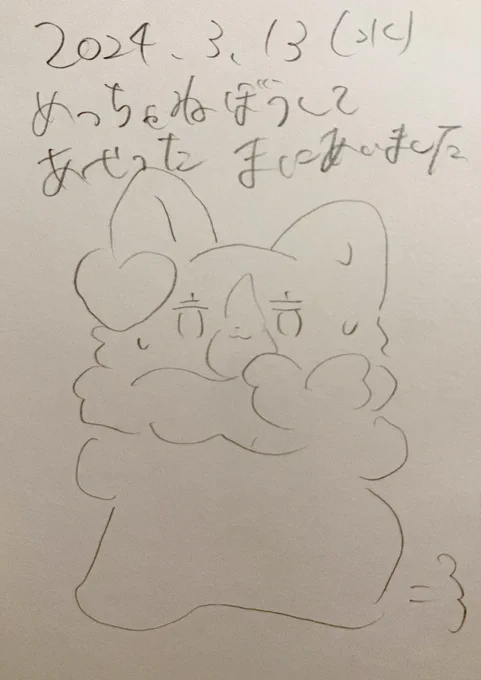 2024.3.13(水)
めっちゃねぼうして
あせった まにあいました